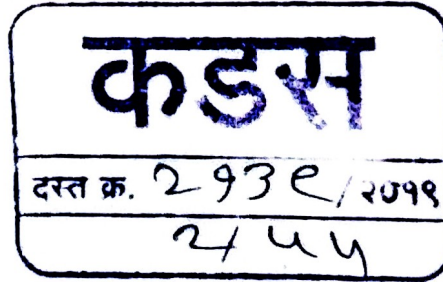 कडस
दस्त क्र. २१३९/२०१९
२/५५